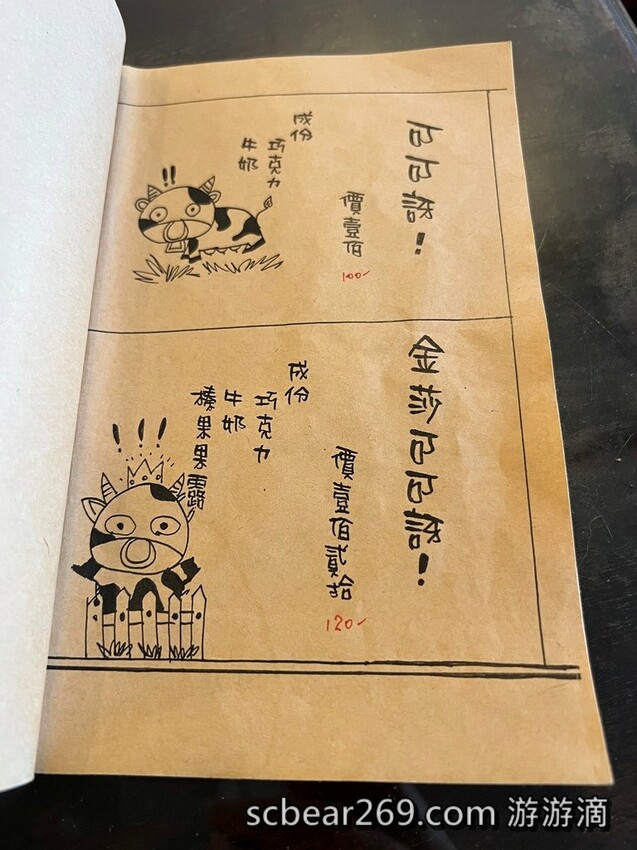 成份
巧克力
牛奶
價壹佰
100-
!!
金莎
價壹佰貳拾
120-
成份
巧克力
牛奶
榛果果露
!!!
scbear269.com 游游滴